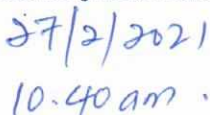 27/2/2021
10.40 am.